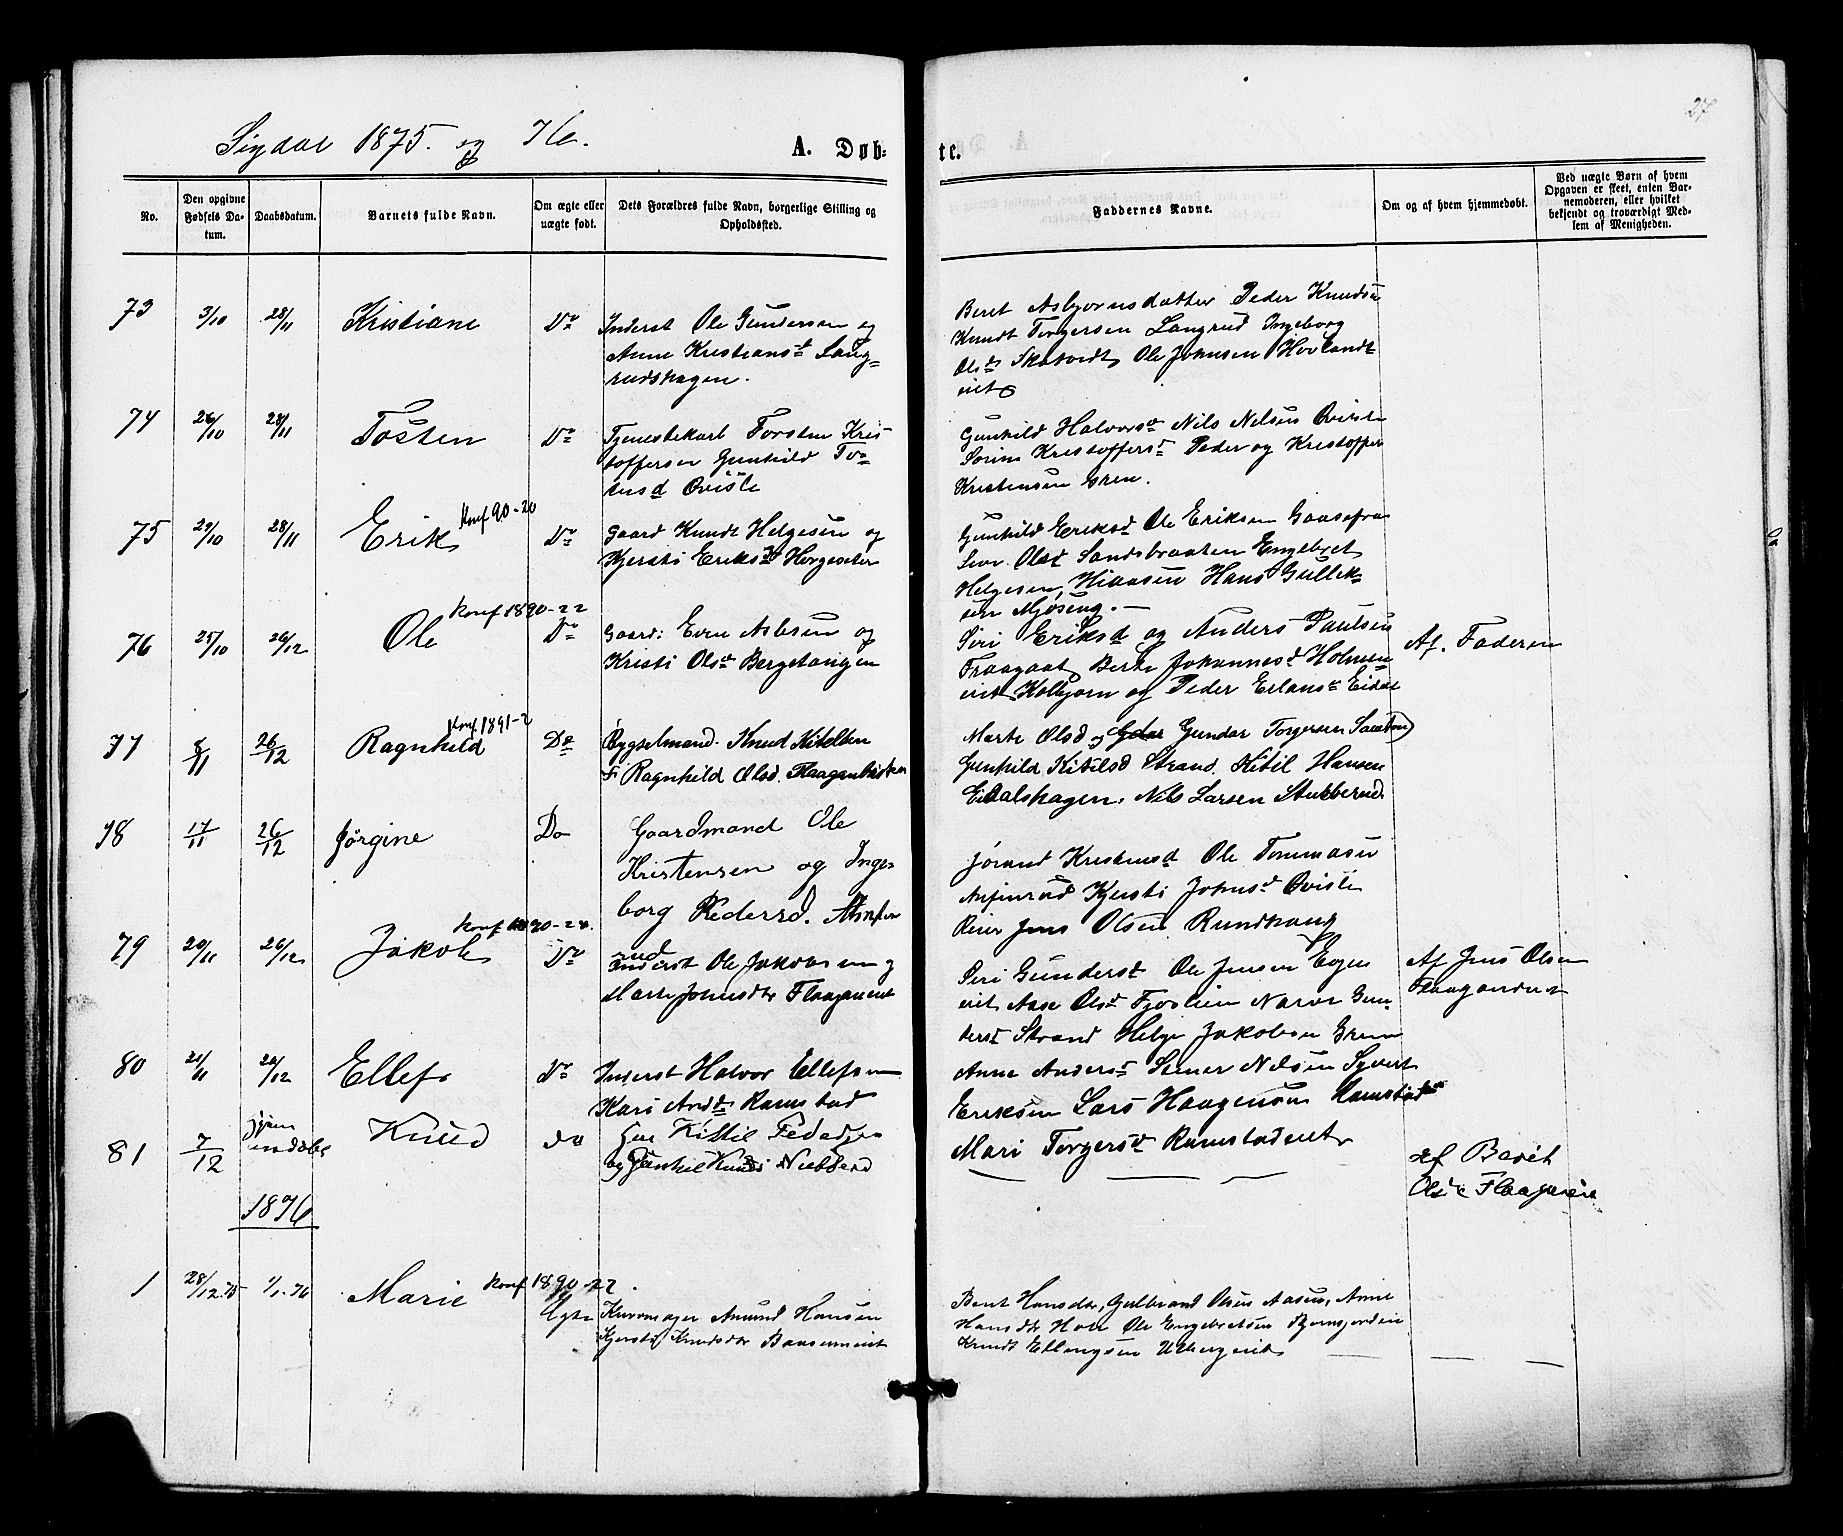 27
Sigdal 1875. og 76.
A. Døb-
te.
No.
Den opgivne Fødsels Da-tum.
Daabsdatum.
Barnets fulde Navn.
Om ægte eller uægte født.
Dets Forældres fulde Navn, borgerlige Stilling og Opholdssted.
Faddernes Navne.
Om og af hvem hjemmedøbt.
Ved uægte Børn af hvem Opgaven er skeet, enten Bar-nemoderen, eller hvilket bekjendt og troværdigt Med-lem af Menigheden.
73 3/10 28/11 Kristiane Do Inderst Ole Gundersen og
Anne Kristiansd Lang-
rudshagen.
Beret Asbjørnsdatter Peder Knudsen
Knudt Torgersen Langrud Ingeborg
Olsd Skatvedt Ole Johnsen Hovlandt
eiet
74 26/10 28/11 Tosten Do Tjenestekarl Torsten Kris
toffersen Gunhild To
stensd Qvisle
Gunhild Halvorsd Nils Nelsen Qvisle
Sorine Kristoffersd Peder og Kristoffer
Kristensen Gren.
75 29/10 28/11 Erik Konf 90-20 Do Gaard Knudt Helgesen og
Kjersti Eriksd Horgeseter
Gunhild Eriksd Ole Eriksen Gaasefra
Olsd Sandsbraaten Engebret
Helgesen, Hiaasen Hans Gullik-
sen Mjøseng. —
76 25/10 26/12 Ole Konf 1890-22 Do Gaard: Even Aslesen og
Kristi Olsd Bergstangen
Siri Eriksd og Anders Paulsen
Fraagaat Berte Johannesd Holmen
eiet Kolbjørn og Peder Erlans Eidal
Af. Faderen
77 5/11 26/12 Ragnhild Konf. 1891-2 Do Bygselmand. Knud Kitelsen
& Ragnhild Olsd. Flaaganbakken
Marte Olsd og Gundar Torgersen Saaton)
Gunhild Kitilsd Strand. Kitil Hansen
Eidalshagen. Nils Larsen Stubberud
78 17/11 26/12 Jørgine Do Gaardmand Ole
Kristensen og Inge-
borg Pedersd.
rud
Jørand Kristensd Ole Tommasen
Kjersti Johnsd Qvisle
Jens Olsen Rundhaug
79 20/11 26/12 Jakob Konf 1890-24. Do Inderst Ole Jakobsen og
Marte Johnsdtr Flaaganeiet
Siri Gundersd Ole Jensen Eger
eiet Aase Olsd Fjoslien Narve Gun-
dersd Strand Helge Jakobsen Gren
Af Jens Olsen
Flaaganeiet
80 21/11 26/12 Ellef Do Inderst Halvor Ellefsen
Kari Andd Ramstad
Anne Andersd Steiner Nilsen Syvert
Eriksen Lars Haagensen Ramstad
81 7/12 hjem mdøbt Knud do Gm Kittil Pedersen
og Gunhil Knudsd Nubberud
Mari Torgersd Ramstadeiet
af Berét
Olsdr Flaaganeie
1876
1 28/12.75 1/1.76 Marie Konf 1890-22. Ægte Kurvmager Amund Hansen
Kjersti Knudsdtr Baaseneiet
Berit Hansdtr, Gulbrand Olsen Aasen, Anne
Hansdtr Hole Ole Engebretsen Bjørnsjordeie
Knudt Ellingsen Ulbergeiet